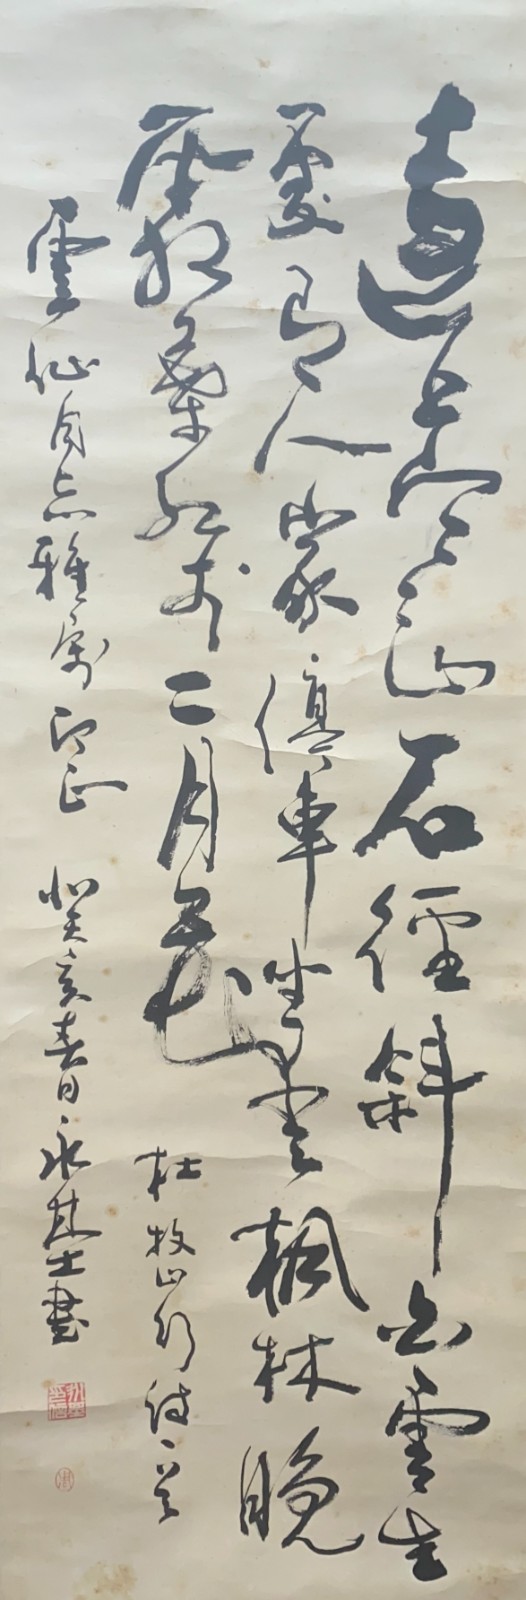 遠上寒山石徑斜白雲生
處有人家停車坐愛楓林
晚
霜葉紅於二月花
杜牧山行詩一首
雲仙同志雅属即正 癸亥春日永基士書